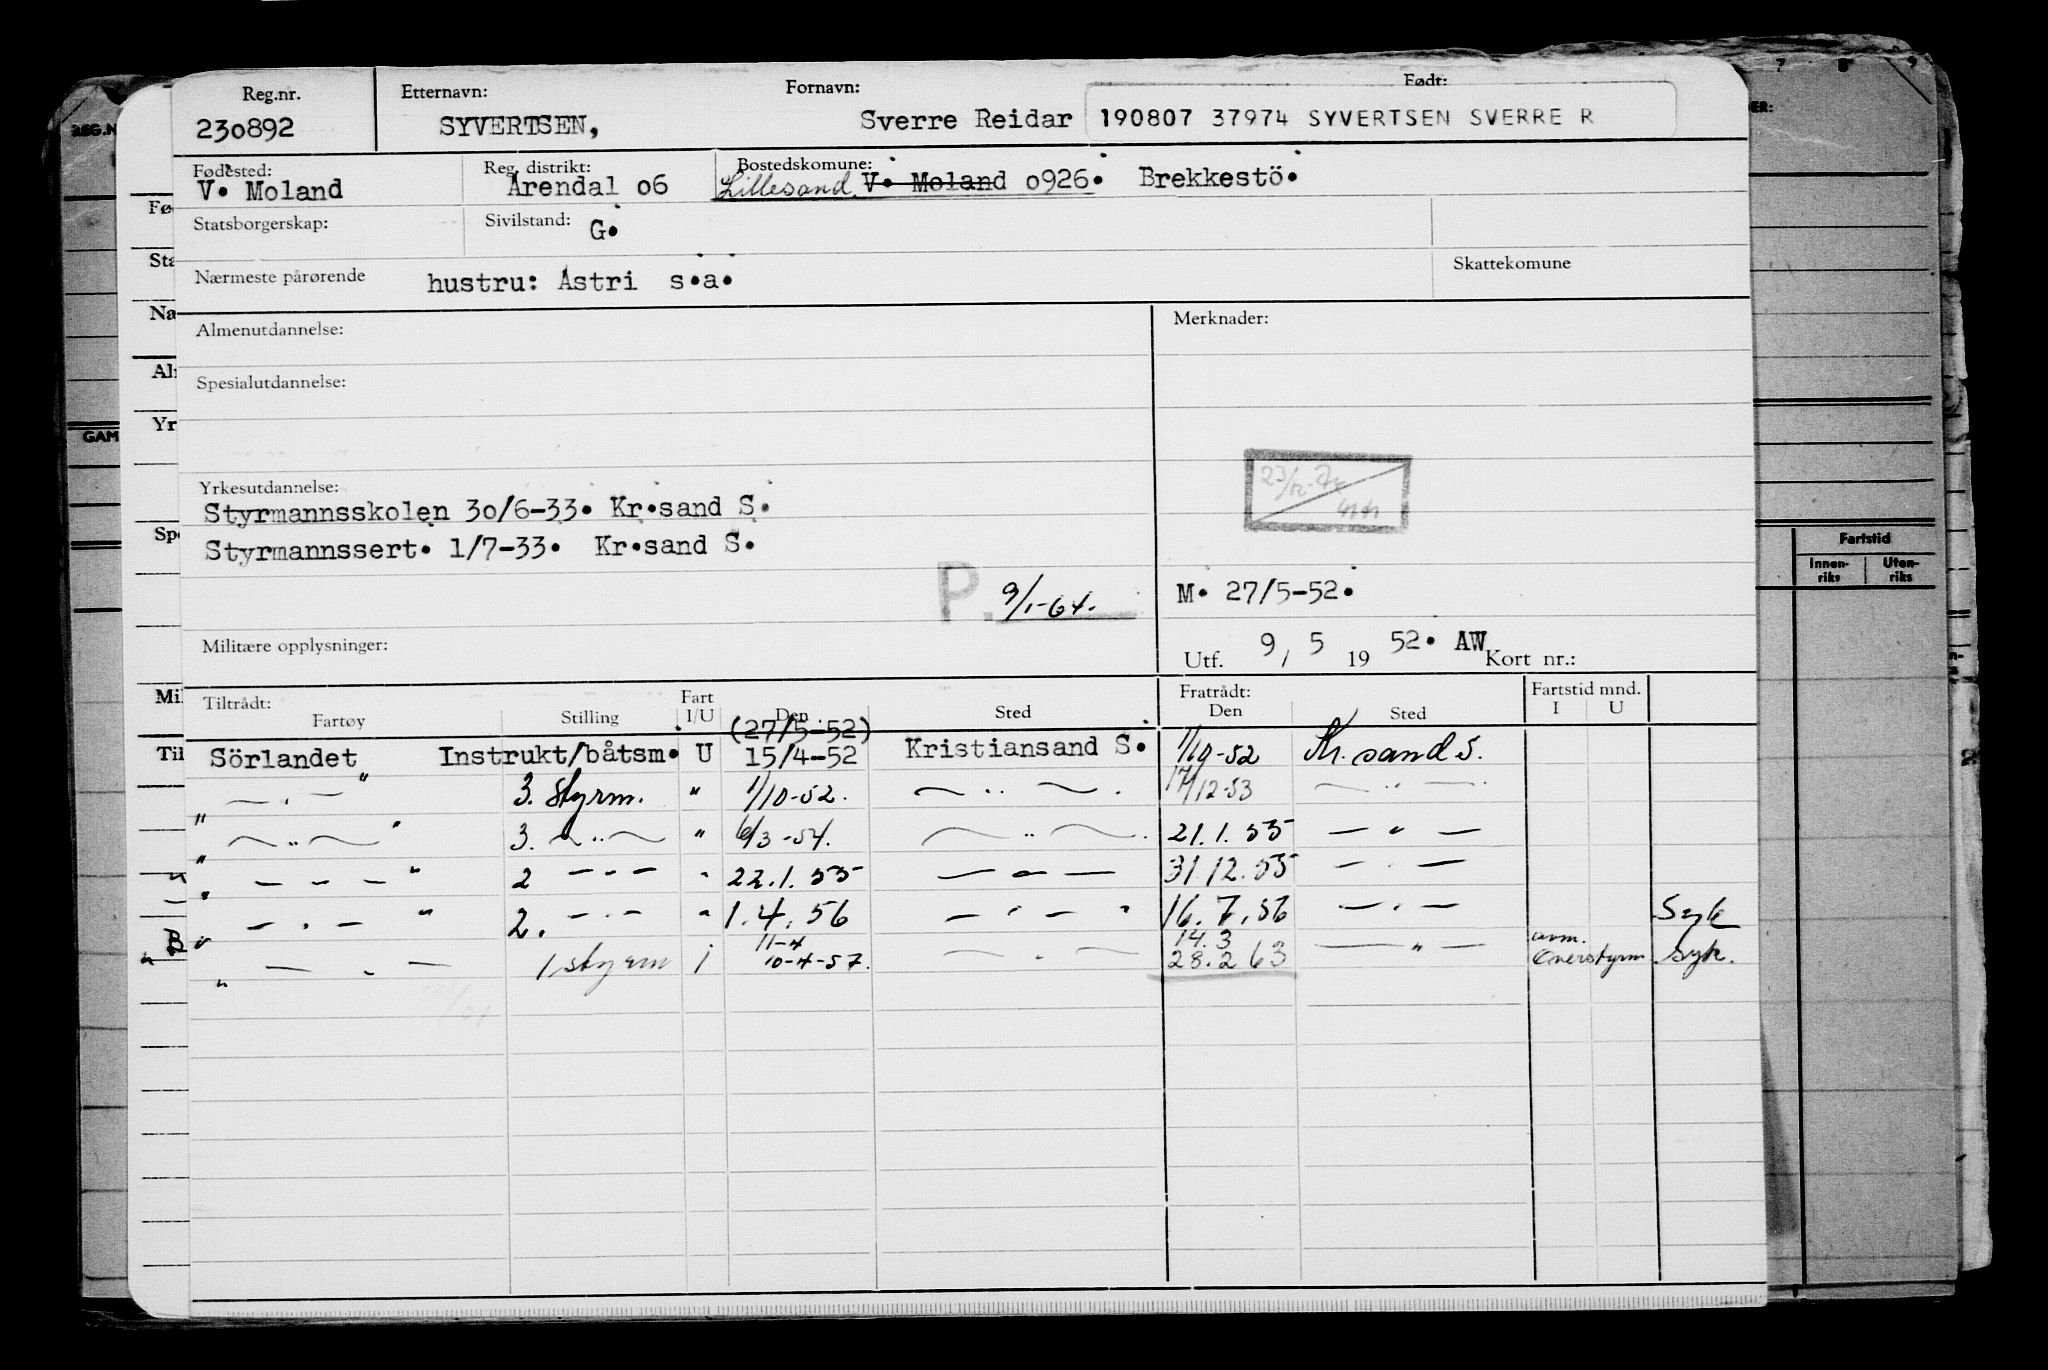 Reg.nr. Etternavn: Fornavn: Født:
230892 SYVERTSEN, Sverre Reidar 190807 37974 SYVERTSEN SVERRE R
Fødested: Reg. distrikt: Bostedskomune:
V. Moland Arendal 06 Lillesand V. Moland 0926. Brekkestö.
Statsborgerskap: Sivilstand: G.
Nærmeste pårørende hustru: Astri s.a. Skattekomune
Almenutdannelse: Merknader:
Spesialutdannelse:
Yrkesutdannelse:
Styrmannsskolen 30/6-33. Kr.sand S.
Styrmannssert. 1/7-33. Kr.sand S.
P. 9/1-64. M. 27/5-52.
Militære opplysninger: Utf. 9, 5 19 52. AW Kort nr.:
Tiltrådt: Fart Fratrådt: Fartstid mnd.
Fartøy Stilling I/U Den Sted Den Sted I U
(27/5-52)
Sörlandet Instrukt/båtsm. U 15/4-52 Kristiansand S. 1/10-52 Kr.sand S.
" — . — " 3. styrm. " 1/10-52. — .. — . 17/12-53 — .. —
" — .. — " 3. — .. — " 6/3-54. — .. — . 21.1.55 — " —
" — — — " 2 — - — " 22.1.55 — — — 31.12.55 — . —
" — . — " 2. — . — " 1.4.56 — . — " 16.7.56 — . — Syk
11-4 14.3 avm.
" — . — 1 styrm i 10-4-57. — . — 28.2 63 — " — Overstyrm. syk.
REG.N
GAM
Fø
Sta
Na
Al
Yr
Spe
Mil
Til
B
7 8 9
ER:
Fartstid
Innen-riks Uten-riks